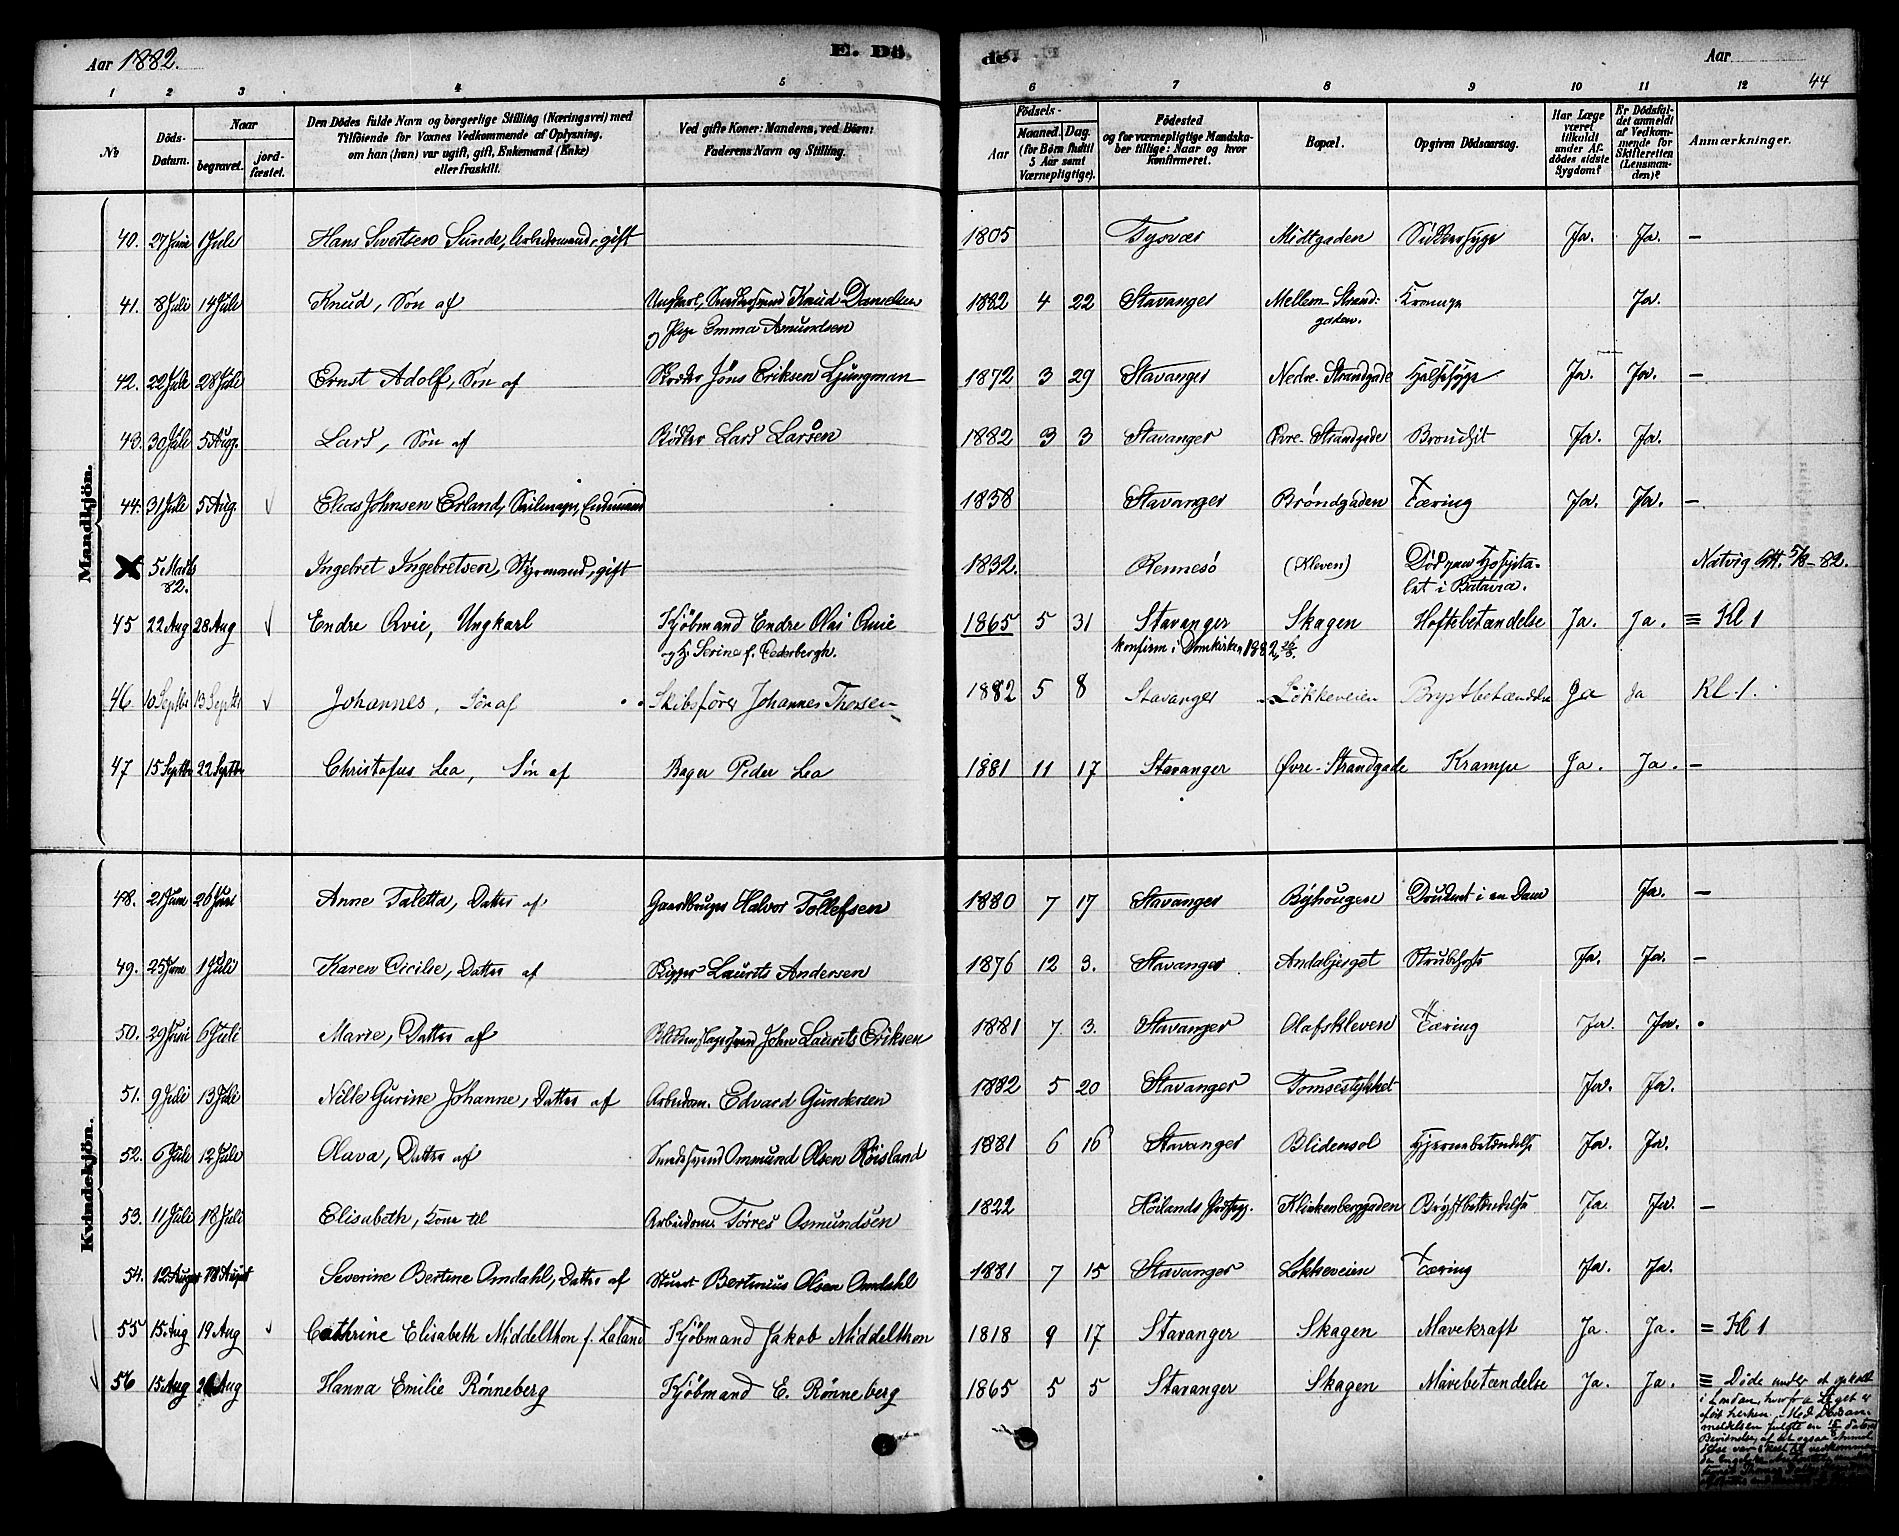 Aar 1882.
E. Dö
de.
Aar
44
1 2 3 4 5 6 7 8 9 10 11 12
№
Döds-
Datum.
Naar
begravet.
jord-
fæstet.
Den Dödes fulde Navn og borgerlige Stilling (Næringsvei) med
Tilföiende for Voxnes Vedkommende af Oplysning,
om han (hun) var ugift, gift, Enkemand (Enke)
eller fraskilt.
Ved gifte Koner: Mandens, ved Börn:
Faderens Navn og Stilling.
Födsels-
Aar
Maaned. Dag.
(for Börn indtil
5 Aar samt
Værnepligtige).
Födested
og for værnepligtige Mandska-
ber tillige: Naar og hvor
konfirmeret.
Bopæl.
Opgiven Dödsaarsag.
Har Læge
været
tilkaldt
under Af-
dödes sidste
Sygdom?
Er Dödsfal-
det anmeldt
af Vedkom-
mende for
Skifteretten
(Lensman-
den)?
Anmærkninger.
Mandkjön.
40. 27 Juni 1 Juli Hans Sivertsen Sunde, Arbeidsmand, gift 1805 Tysvær Midtgaden Sukkersyge Ja. Ja. —
41. 8 Juli 14 Juli Knud, Søn af Ungkarl, Knud Danielsen 1882 4 22 Stavanger Mellem-Strand- Krampe Ja.
og Pige Emma Amundsen gaden.
42. 22 Juli 28 Juli Ernst Adolf, Søn af Jöns Eriksen Ljungman 1872 3 29 Stavanger Nedre Strandgade Halssyge Ja. Ja. —
43. 30 Juli 5 Aug. Lars, Søn af Bødker Lars Larsen 1882 3 3 Stavanger Øvre Strandgade Bronchit Ja. Ja.
44. 31 Juli 5 Aug. Elias Johnsen Erland, Seilmager, Enkemand 1838 Stavanger Brøndgaden Tæring Ja. Ja. —
5 Marts Ingebret Ingebretsen, Styrmand, gift 1832. Rennesø (Kleven) Død paa Hospita- Natvig Att. 5/8-82.
82. let i Batavia.
45 22 Aug 28 Aug Endre Qvie, Ungkarl Kjöbmand Endre Olai Qvie 1865 5 31 Stavanger Skagen Hoftebetændelse Ja. Ja. = Kl 1
og H. Serine f. Cederbergh. Konfirm i Domkirken 1882
46 10 Septbr 13 Septbr Johannes, Søn af Skibsfører Johannes Thorsen 1882 5 8 Stavanger Løkkeveien Brystbetændelse Ja Ja Kl. 1.
47 15 Septbr 22 Septbr Christofus Lea, Søn af Bager Peder Lea 1881 11 17 Stavanger Øvre Strandgade Krampe Ja. Ja. —
Kvindekjön.
48. 21 Juni 26 Juni Anne Taletta, Datter af Gaardbruger Halvor Tollefsen 1880 7 17 Stavanger Byhougen Druknet i en Dam Ja. —
49. 25 Juni 1 Juli Karen Cicilie, Datter af Skipper Laurits Andersen 1876 12 3. Stavanger Andabjerget Strubehoste Ja. Ja. —
50. 29 Juni 6 Juli Marie, Datter af Blikkenslagersvend John Laurits Eriksen 1881 7 3. Stavanger Olafskleven Tæring Ja. Ja.
51. 9 Juli 13 Juli Nille Gurine Johanne, Datter af Arbeidsm. Edvard Gundersen 1882 5 20 Stavanger Tomsestykket Ja. Ja.
52. 6 Juli 12 Juli Olava, Datter af Ommund Olsen Røisland 1881 6 16 Stavanger Blidensol Hjernebetændelse Ja. Ja.
53. 11 Juli 18 Juli Elisabeth, Kone til Arbeidsm. Torres Osmundsen 1822 Høilands Præstegj. Klinkenberggaden Brystbetændelse Ja. Ja. —
54. 12 August 18 August Severine Bertine Omdahl, Datter af Stuert Bertinius Olsen Omdahl 1881 7 15 Stavanger Løkkeveien Tæring Ja. Ja.
55 15 Aug 19 Aug Cathrine Elisabeth Middelthon f. Laland Kjöbmand Jakob Middelthon 1818 9 17 Stavanger Skagen Mavekræft Ja. Ja. = Kl 1
56 15 Aug Aug Hanna Emilie Rönneberg Kjöbmand E. Rönneberg 1865 5 5 Stavanger Skagen Mavebetændelse Ja. Ja. = Döde under et ophold
i London, hvorfra Liget er